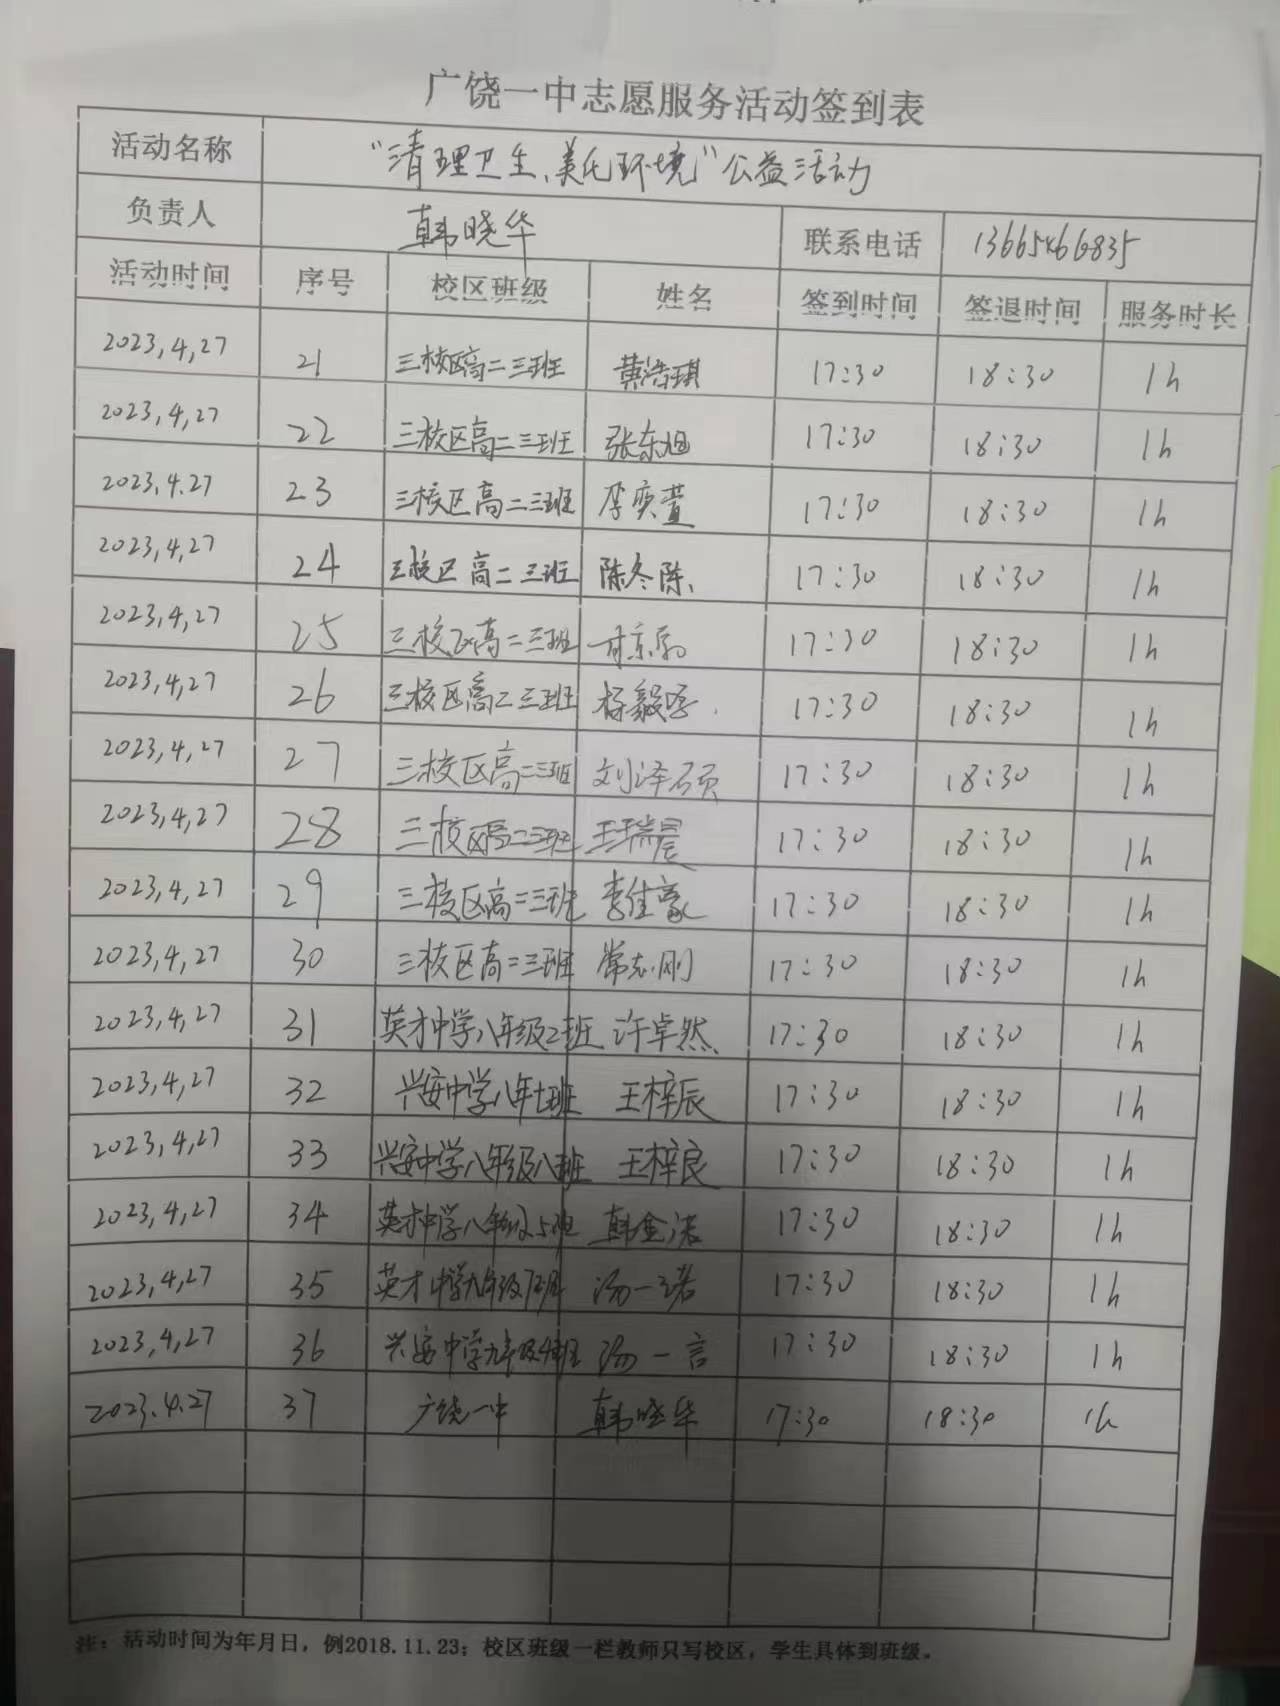 广饶一中志愿服务活动签到表
活动名称 “清理卫生、美化环境”公益活动
负责人 韩晓华 联系电话 13665466835
活动时间 序号 校区班级 姓名 签到时间 签退时间 服务时长
2023,4,27 21 三校区高二三班 黄浩琪 17:30 18:30 1h
2023,4,27 22 三校区高二三班 张东旭 17:30 18:30 1h
2023,4.27 23 三校区高二三班 李奕萱 17:30 18:30 1h
2023,4,27 24 三校区高二三班 陈冬陈 17:30 18:30 1h
2023,4,27 25 三校区高二三班 17:30 18:30 1h
2023,4,27 26 三校区高二三班 17:30 18:30 1h
2023,4,27 27 三校区高二三班 刘泽硕 17:30 18:30 1h
2023,4,27 28 三校区高二三班 王瑞晨 17:30 18:30 1h
2023,4,27 29 三校区高二三班 李佳豪 17:30 18:30 1h
2023,4,27 30 三校区高二三班 常志刚 17:30 18:30 1h
2023,4,27 31 英才中学八年级2班 许卓然 17:30 18:30 1h
2023,4,27 32 兴安中学八年七班 王梓辰 17:30 18:30 1h
2023,4,27 33 兴安中学八年级八班 王梓良 17:30 18:30 1h
2023,4,27 34 英才中学八年级5班 韩金诺 17:30 18:30 1h
2023,4,27 35 英才中学九年级7班 汤一诺 17:30 18:30 1h
2023,4,27 36 兴安中学九年级4班 汤一言 17:30 18:30 1h
2023.4.27 37 广饶一中 韩晓华 17:30 18:30 1h
注：活动时间为年月日，例2018.11.23；校区班级一栏教师只写校区，学生具体到班级。